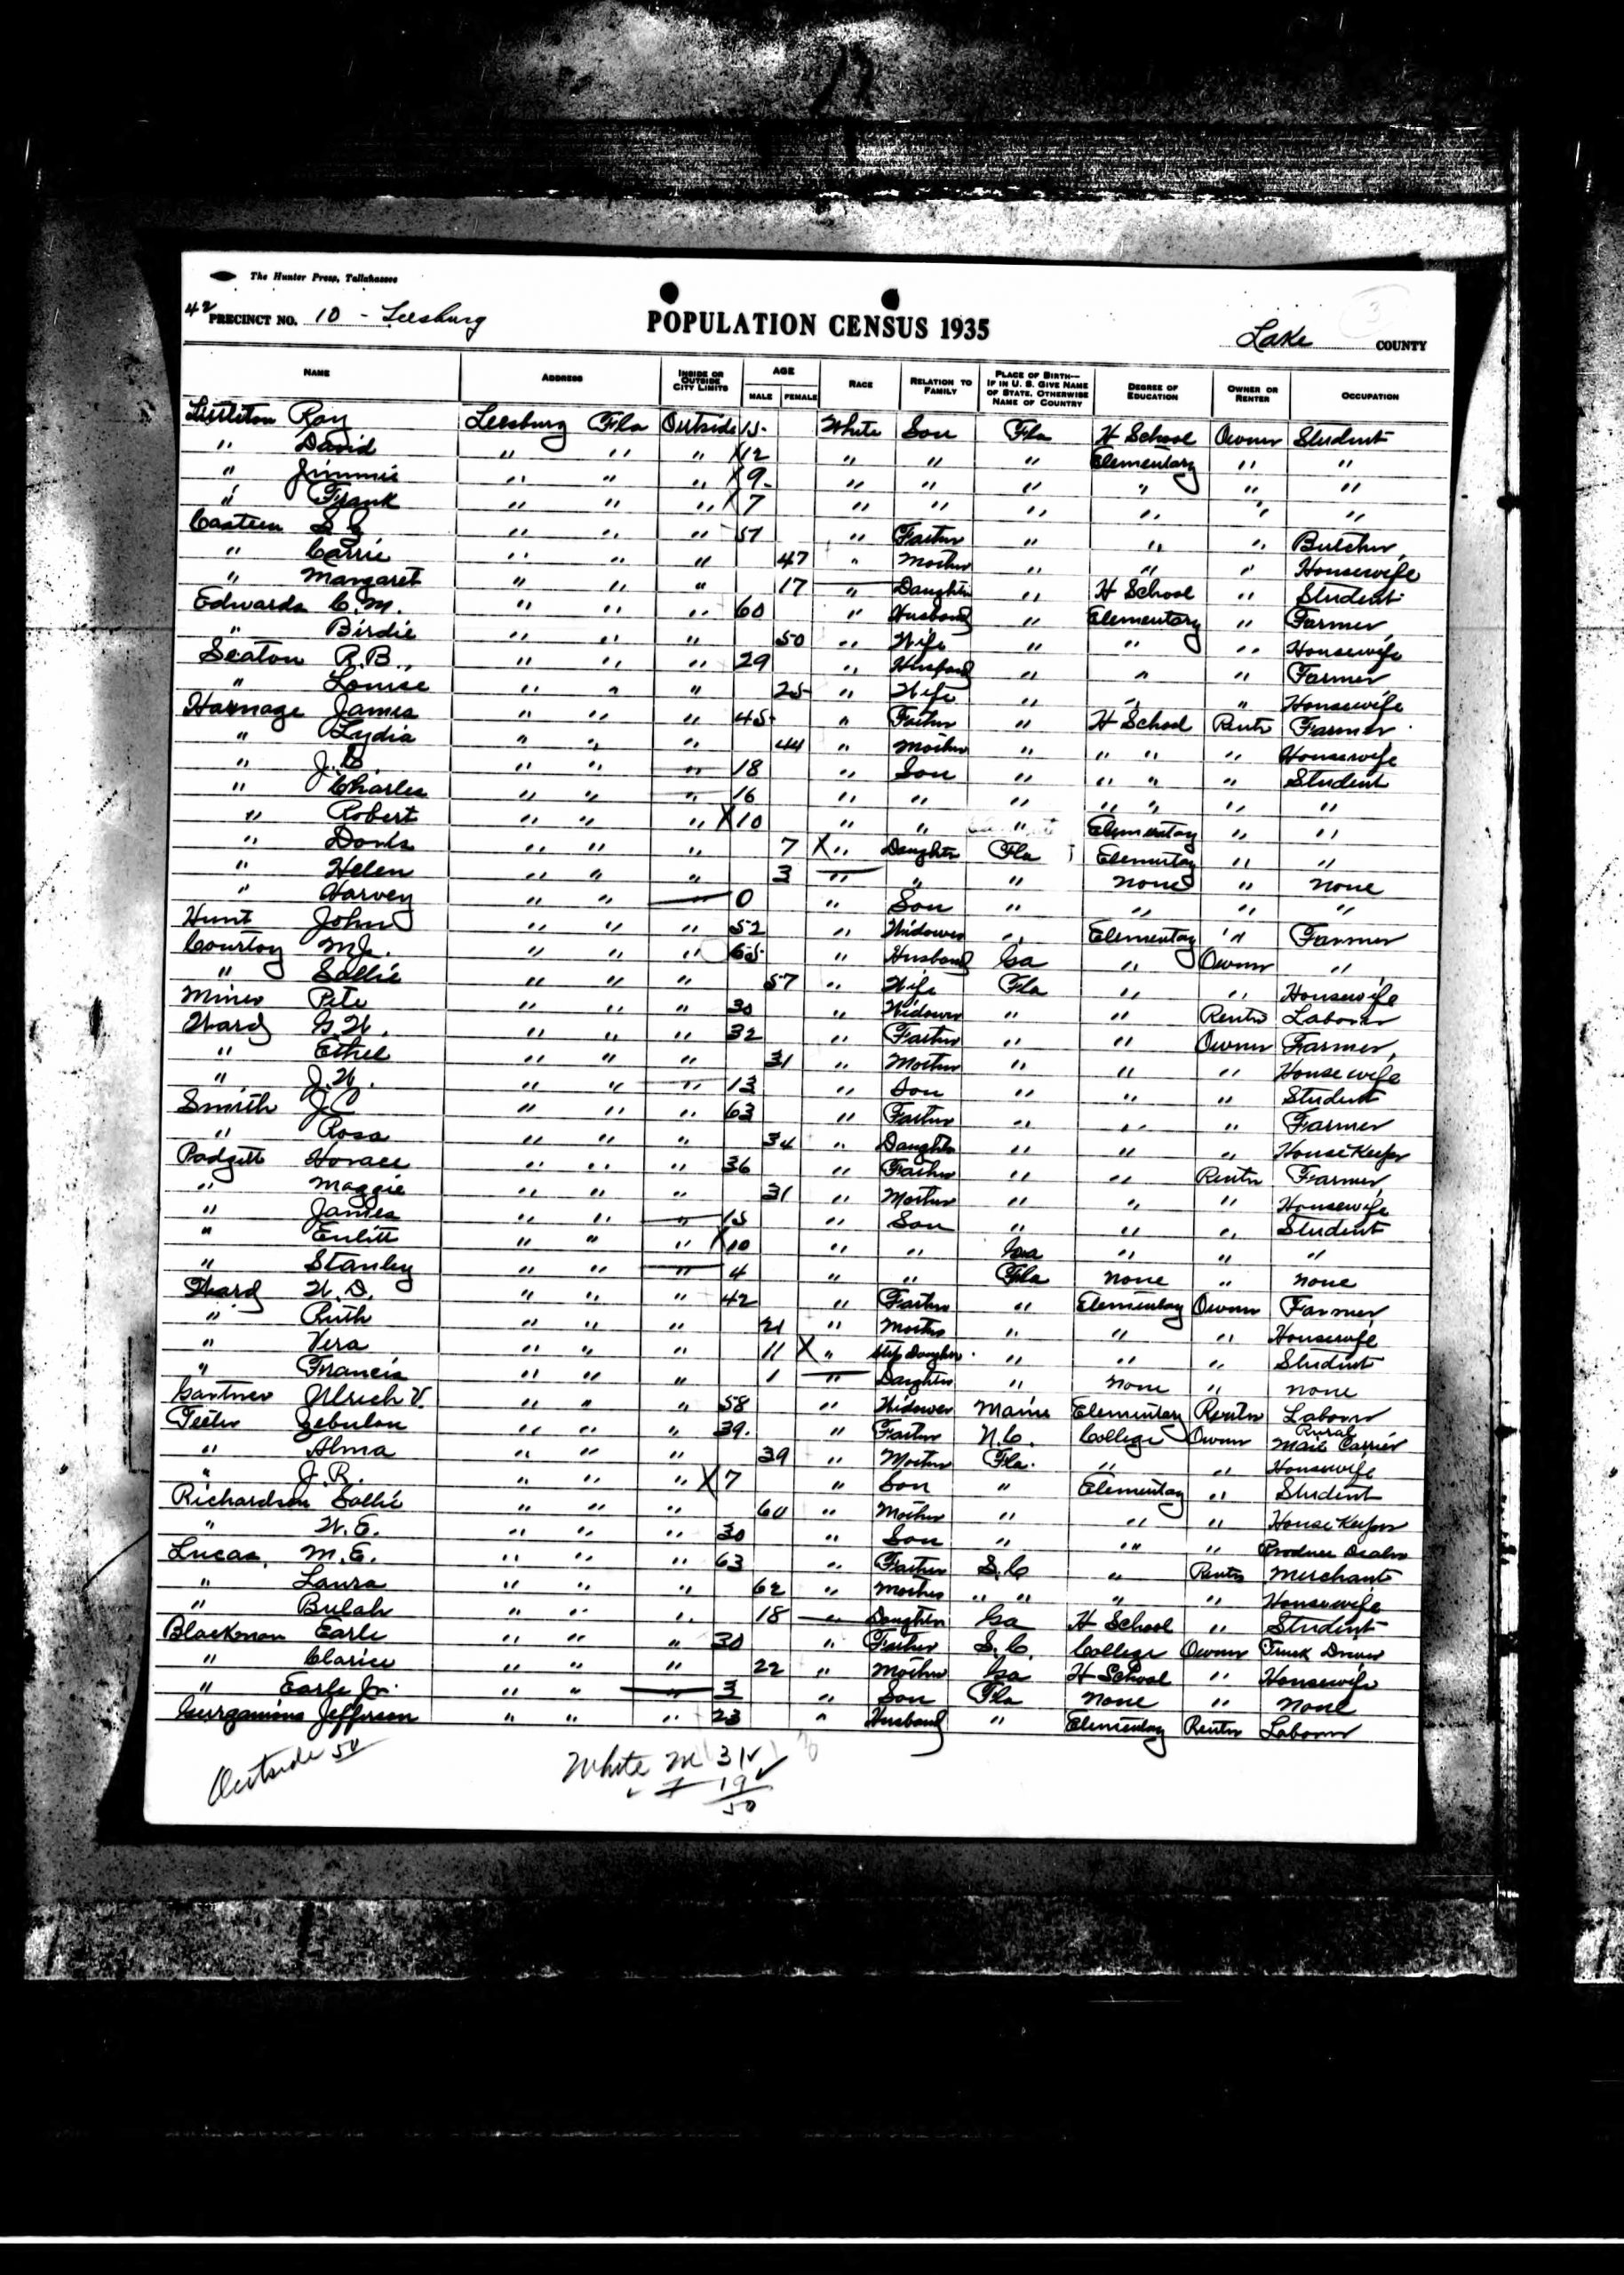 The Hunter Press, Tallahassee
42
PRECINCT NO. 10 - Leesburg POPULATION CENSUS 1935 Lake COUNTY 3
NAME ADDRESS INSIDE OR OUTSIDE CITY LIMITS AGE MALE FEMALE RACE RELATION TO FAMILY PLACE OF BIRTH—IF IN U. S. GIVE NAME OF STATE, OTHERWISE NAME OF COUNTRY DEGREE OF EDUCATION OWNER OR RENTER OCCUPATION
Littleton Ray Leesburg Fla Outside 15 White Son Fla H School Owner Student
" David " " " X 12 " " " Elementary " "
" Jimmie " " " X 9 " " " " " "
" Frank " " " X 7 " " " " " "
" " " 57 " Father " " " Butcher
" Carrie " " " 47 " Mother " " " Housewife
" Margaret " " " 17 " Daughter " H School " Student
Edwards C. M. " " " 60 " Husband " Elementary " Farmer
" Birdie " " " 50 " Wife " " " Housewife
Seaton R. B. " " " 29 " Husband " " " Farmer
" Louise " " " 25 " Wife " " " Housewife
Harnage James " " " 45 " Father " H School Rentr Farmer
" Lydia " " " 44 " Mother " " " " Housewife
" J. " " " 18 " Son " " " " Student
" Charles " " " 16 " " " " " " "
" Robert " " " X 10 " " " Elementary " "
" Doris " " " 7 X " Daughter Fla Elementary " "
" Helen " " " 3 " " " none " none
" Harvey " " " 0 " Son " " " "
Hunt John " " " 52 " Widower " Elementary " Farmer
Courtoy M. J. " " " 65 " Husband Ga " Owner "
" Sallie " " " 57 " Wife Fla " " Housewife
Miner Pete " " " 30 " Widower " " Rentr Laborer
Ward G. W. " " " 32 " Father " " Owner Farmer
" Ethel " " " 31 " Mother " " " Housewife
" J. W. " " " 13 " Son " " " Student
Smith J C " " " 63 " Father " " " Farmer
" Rosa " " " 34 " Daughter " " " House Keeper
Padgett Horace " " " 36 " Father " " Rentr Farmer
" Maggie " " " 31 " Mother " " " Housewife
" James " " " 15 " Son " " " Student
" " " " X 10 " " Ga " " "
" Stanley " " " 4 " " Fla none " none
Ward W. D. " " " 42 " Father " Elementary Owner Farmer
" Ruth " " " 21 " Mother " " " Housewife
" Vera " " " 11 X " Step Daughter " " " Student
" Francis " " " 1 " Daughter " none " none
Gartner Ulrich V. " " " 58 " Widower Maine Elementary Rentr Laborer
Teeter Zebulon " " " 39 " Father N. C. College Owner Rural Mail Carrier
" Alma " " " 39 " Mother Fla. " " Housewife
" J. R. " " " X 7 " Son " Elementary " Student
Richardson Sallie " " " 60 " Mother " " " House Keeper
" W. E. " " " 30 " Son " " " Produce Dealer
Lucas, M. E. " " " 63 " Father S. C " Rentr Merchant
" Laura " " " 62 " Mother " " " " Housewife
" Bulah " " " 18 " Daughter Ga H School " Student
Blackmon Earle " " " 30 " Father S. C. College Owner Truck Driver
" Clarice " " " 22 " Mother Ga H School " Housewife
" Earle Jr. " " " 3 " Son Fla none " none
Jefferson " " " 23 " Husband " Elementary Rentr Laborer
Outside 50
White M 31
" F 19
50